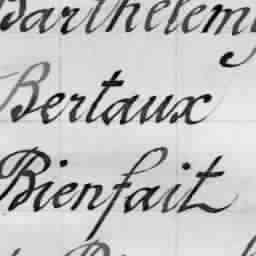 Barthelemy
Bertaux
Bienfait